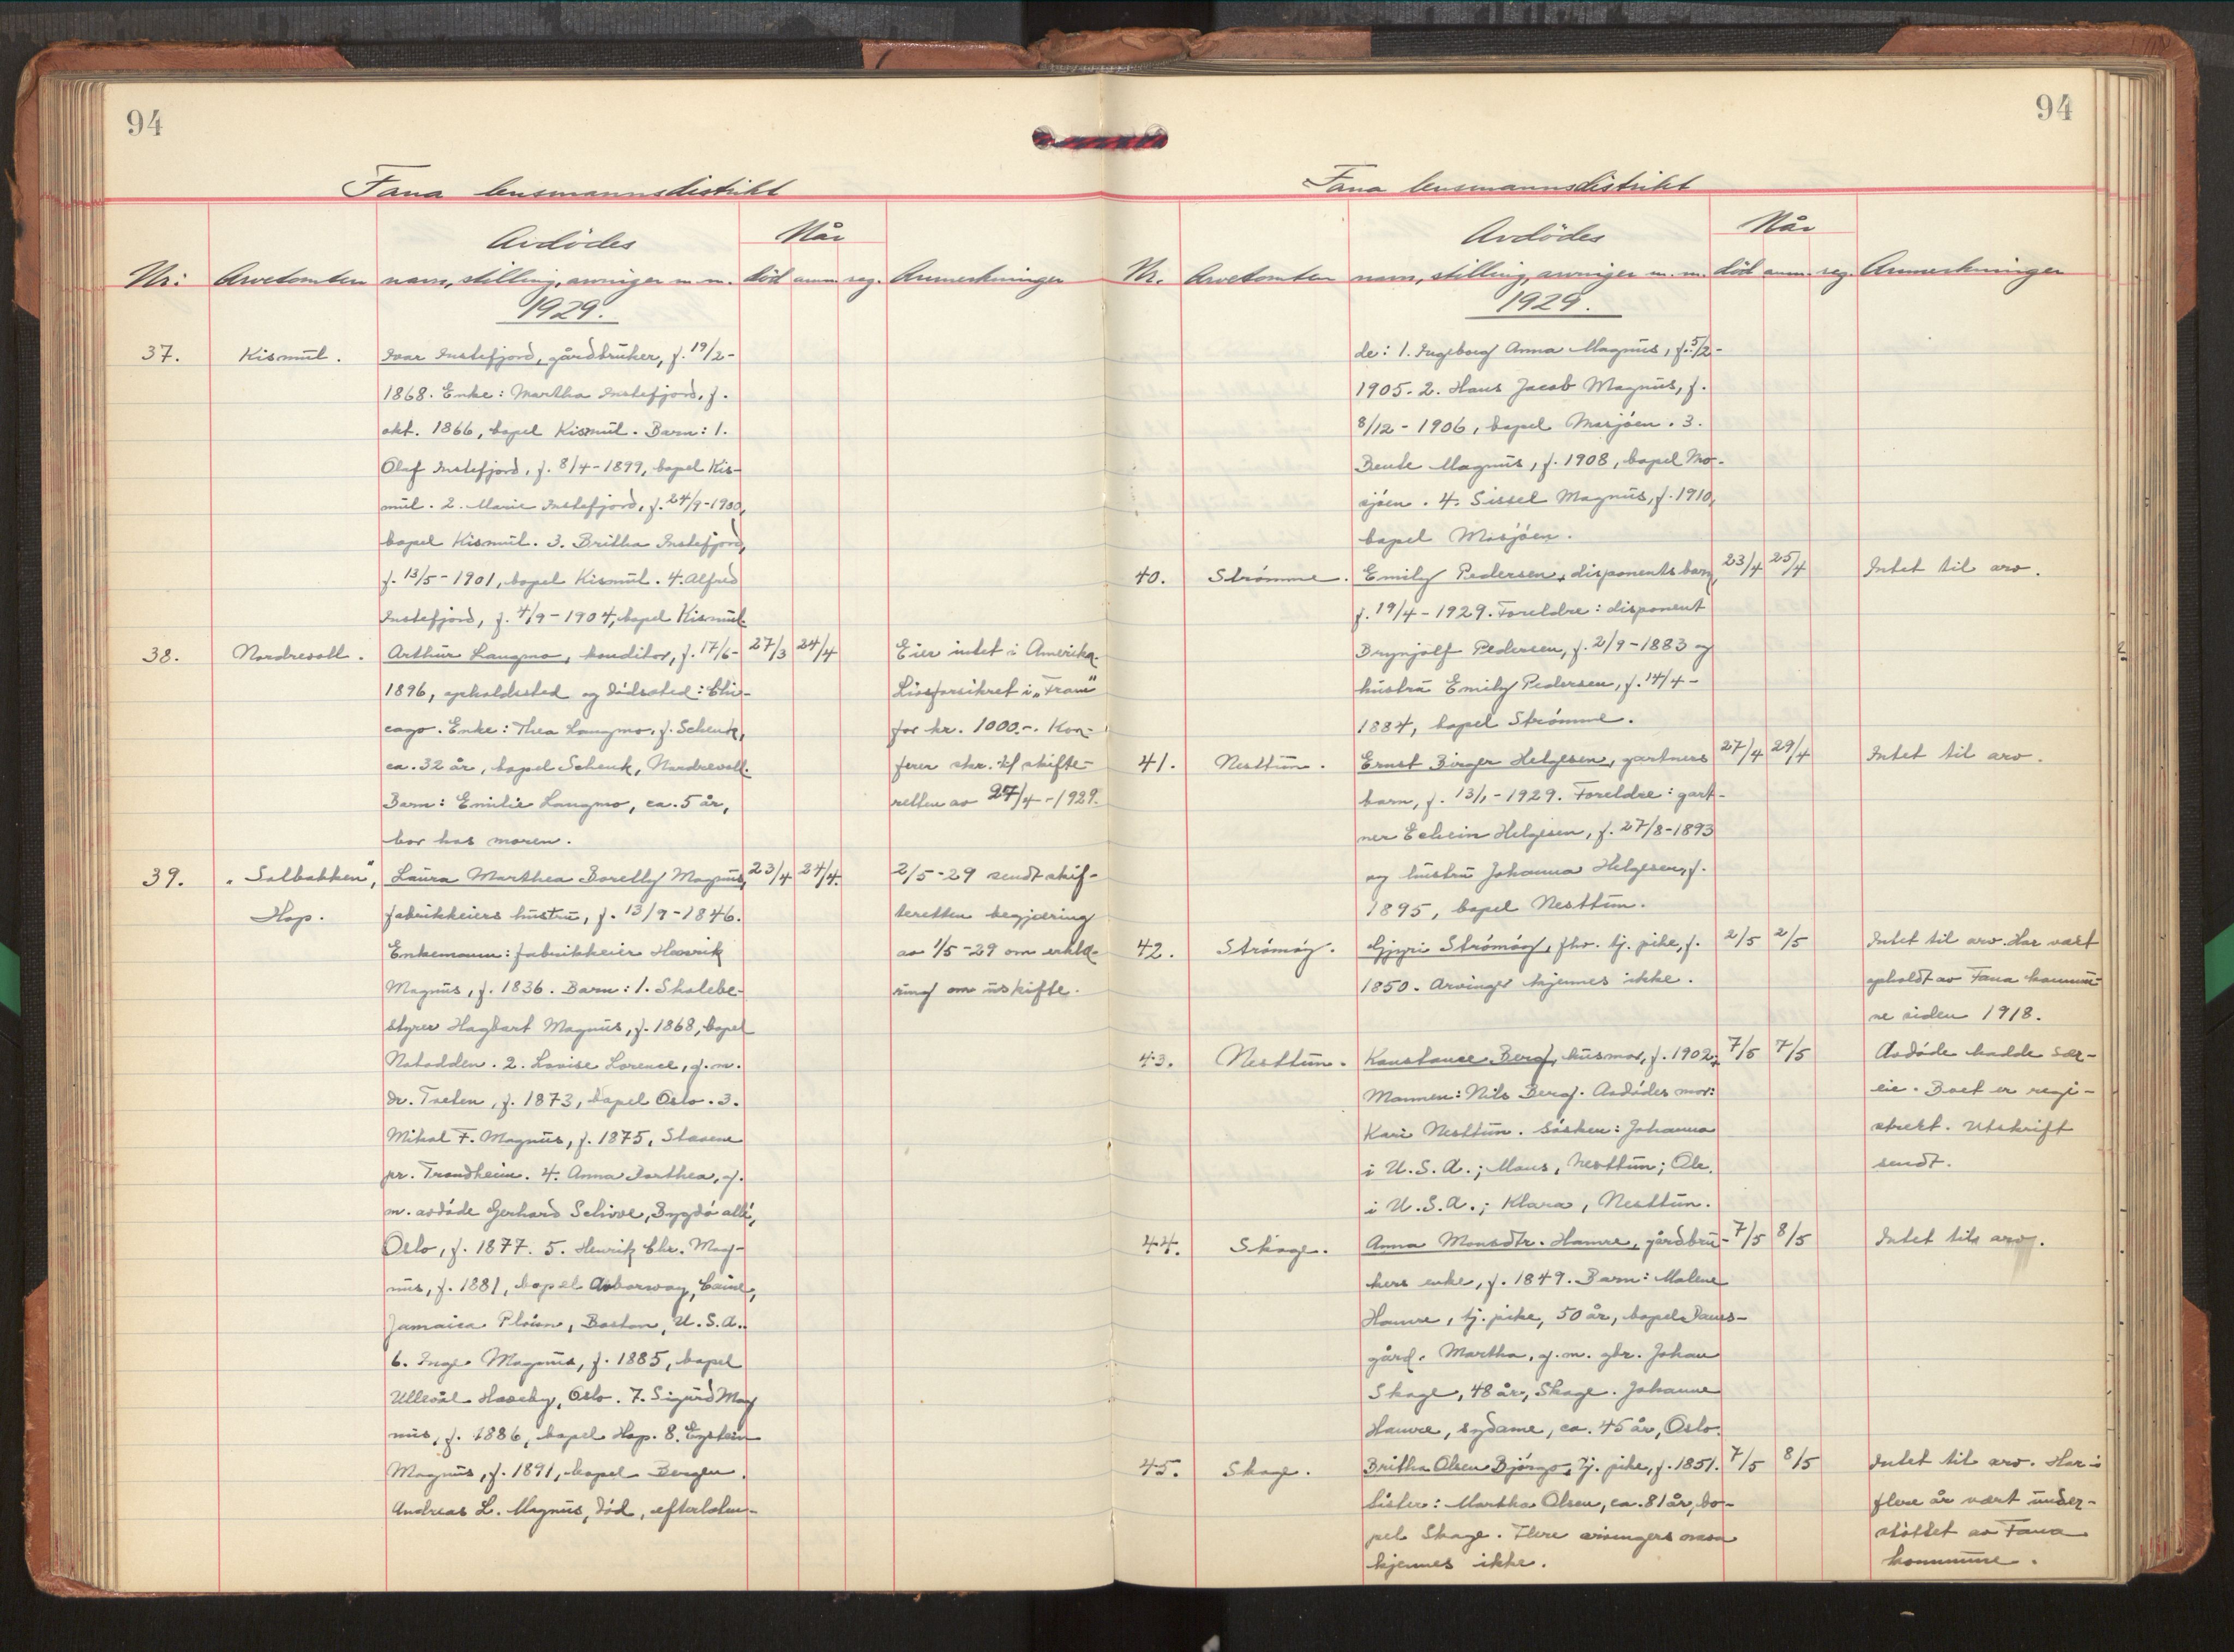 94
Fana lensmannsdistrikt
Nr. Arvetomten Avdödes navn, stilling, arvinger m. m. Når död anm. reg. Anmerkninger
1929.
37. Kismul. Ivar Instefjord, gårdbruker, f. 19/2-
1868. Enke: Martha Instefjord, f.
okt. 1866, bopel Kismul. Barn: 1.
Olaf Instefjord, f. 8/4-1899, bopel Kis-
mul. 2. Marie Instefjord, f. 24/9-1900,
bopel Kismul. 3. Britha Instefjord,
f. 13/5-1901, bopel Kismul. 4. Alfred
Instefjord, f. 4/9-1904, bopel Kismul.
38. Nordrevoll. Arthur Langmo, konditor, f. 17/6- 27/3 24/4 Eier intet i Amerika.
1896, opholdssted og dödssted: Chi- Livsforsikret i "Fram"
cago. Enke: Thea Langmo, f. Schenk, for kr. 1000.-. Kon-
ca. 32 år, bopel Schenk, Nordrevoll. ferer skr. t/ skifte-
Barn: Emilie Langmo, ca. 5 år, retten av 27/4-1929.
bor hos moren.
39. "Solbakken", Laura Marthea Borelly Magnus, 23/4 24/4. 2/5-29 sendt skif-
Hop. fabrikkeiers hustru, f. 13/9-1846. teretten begjæring
Enkemann: fabrikkeier Henrik av 1/5-29 om erklæ-
Magnus, f. 1836. Barn: 1. Skolebe- ring om uskifte.
styrer Hagbart Magnus, f. 1868, bopel
Notodden. 2. Lovise Lorence, g. m.
dr. Tveten, f. 1873, bopel Oslo. 3.
Mikal F. Magnus, f. 1875, Stavne
pr. Trondheim. 4. Anna Dorthea, g.
m. avdöde Gerhard Schive, Bygdö allé,
Oslo, f. 1877. 5. Henrik Chr. Mag-
nus, f. 1881, bopel Arborway,
Jamaica Plain, Boston, U. S. A.
6. Inge Magnus, f. 1885, bopel
Ullevål Haveby, Oslo. 7. Sigurd Mag
nus, f. 1886, bopel Hop. 8. Eystein
Magnus, f. 1891, bopel Bergen.
Andreas L. Magnus, död, efterlaten-
94
Fana lensmannsdistrikt
Nr. Arvetomten Avdödes navn, stilling, arvinger m. m. Når död anm. reg. Anmerkninger
1929.
de: 1. Ingeborg Anna Magnus, f. 5/2-
1905. 2. Hans Jacob Magnus, f.
8/12-1906, bopel Mosjöen. 3.
Bente Magnus, f. 1908, bopel Mo-
sjöen. 4. Sissel Magnus, f. 1910,
bopel Mosjöen.
40. Strömme. Emily Pedersen, disponents barn, 23/4 25/4 Intet til arv.
f. 19/4-1929. Foreldre: disponent
Brynjolf Pedersen, f. 2/9-1883 og
hustru Emily Pedersen, f. 14/4-
1884, bopel Strömme.
41. Nesttun. Ernst Birger Helgesen, gartners 27/4 29/4 Intet til arv.
barn, f. 13/1-1929. Foreldre: gart-
ner Edvin Helgesen, f. 27/8-1893
og hustru Johanna Helgesen, f.
1895, bopel Nesttun.
42. Strömöy. Gjyri Strömöy, fhv. tj. pike, f. 2/5 2/5 Intet til arv. Har vært
1850. Arvinger kjennes ikke. opholdt av Fana kommu-
ne siden 1918.
43. Nesttun. Konstance Berg, husmor, f. 1902. 7/5 7/5 Avdöde hadde sær-
Mannen: Nils Berg. Avdödes mor: eie. Boet er regi-
Kari Nesttun. Sösken: Johanna strert. Utskrift
i U. S. A.; Mons, Nesttun; Ole, sendt.
i U. S. A.; Klara, Nesttun.
44. Skage. Anna Monsdtr. Hamre, gårdbru- 7/5 8/5 Intet til arv.
kers enke, f. 1849. Barn: Malene
Hamre, tj. pike, 50 år, bopel Paris-
gård. Martha, g. m. gbr. Johan
Skage, 48 år, Skage. Johanne
Hamre, sydame, ca. 45 år, Oslo.
45. Skage. Britha Olsen Björgo, tj. pike, f. 1851. 7/5 8/5 Intet til arv. Har i
Sister: Martha Olsen, ca. 81 år, bo- flere år vært under-
pel Skage. Flere arvingers navn stöttet av Fana
kjennes ikke. kommune.